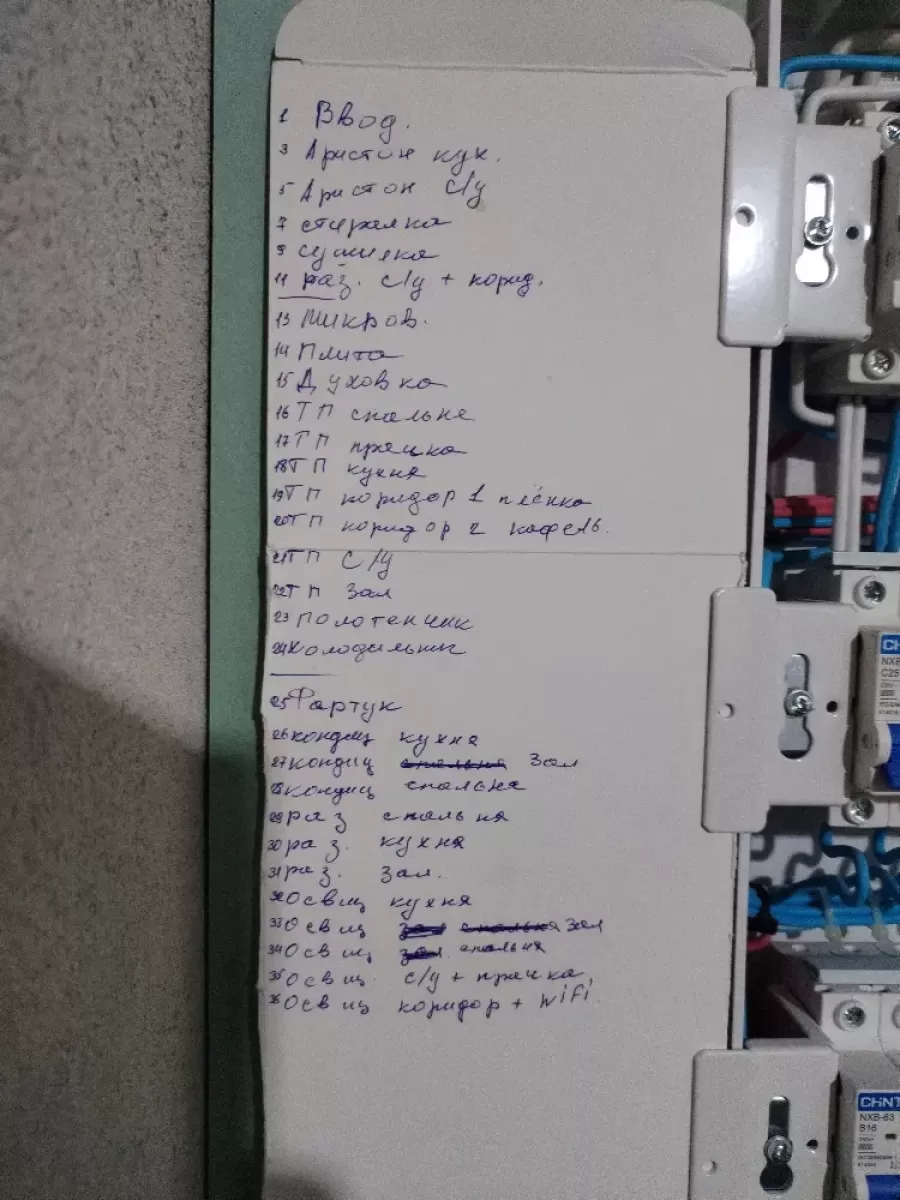 1 Ввод.
3 Аристон кух.
5 Аристон с/у
7 стиралка
9 сушилка
11 раз. с/у + корид.
13 Микров.
14 Плита
15 Духовка
16 ТП спальня
17 ТП прачка
18 ТП кухня
19 ТП коридор 1 плёнка
20 ТП коридор 2 кафель.
21 ТП с/у
22 ТП Зал
23 Полотенчик
24 Холодильник
25 Фартук
26 кондиц кухня
27 кондиц спальня Зал
28 кондиц спальня
29 раз спальня
30 раз. кухня
31 раз. Зал.
32 Освщ кухня
33 Освщ зал спальня Зал
34 Освщ зал спальня
35 Освщ с/у + прачка
36 Освщ коридор + WiFi
C25
CHNT
NXB-63
B16